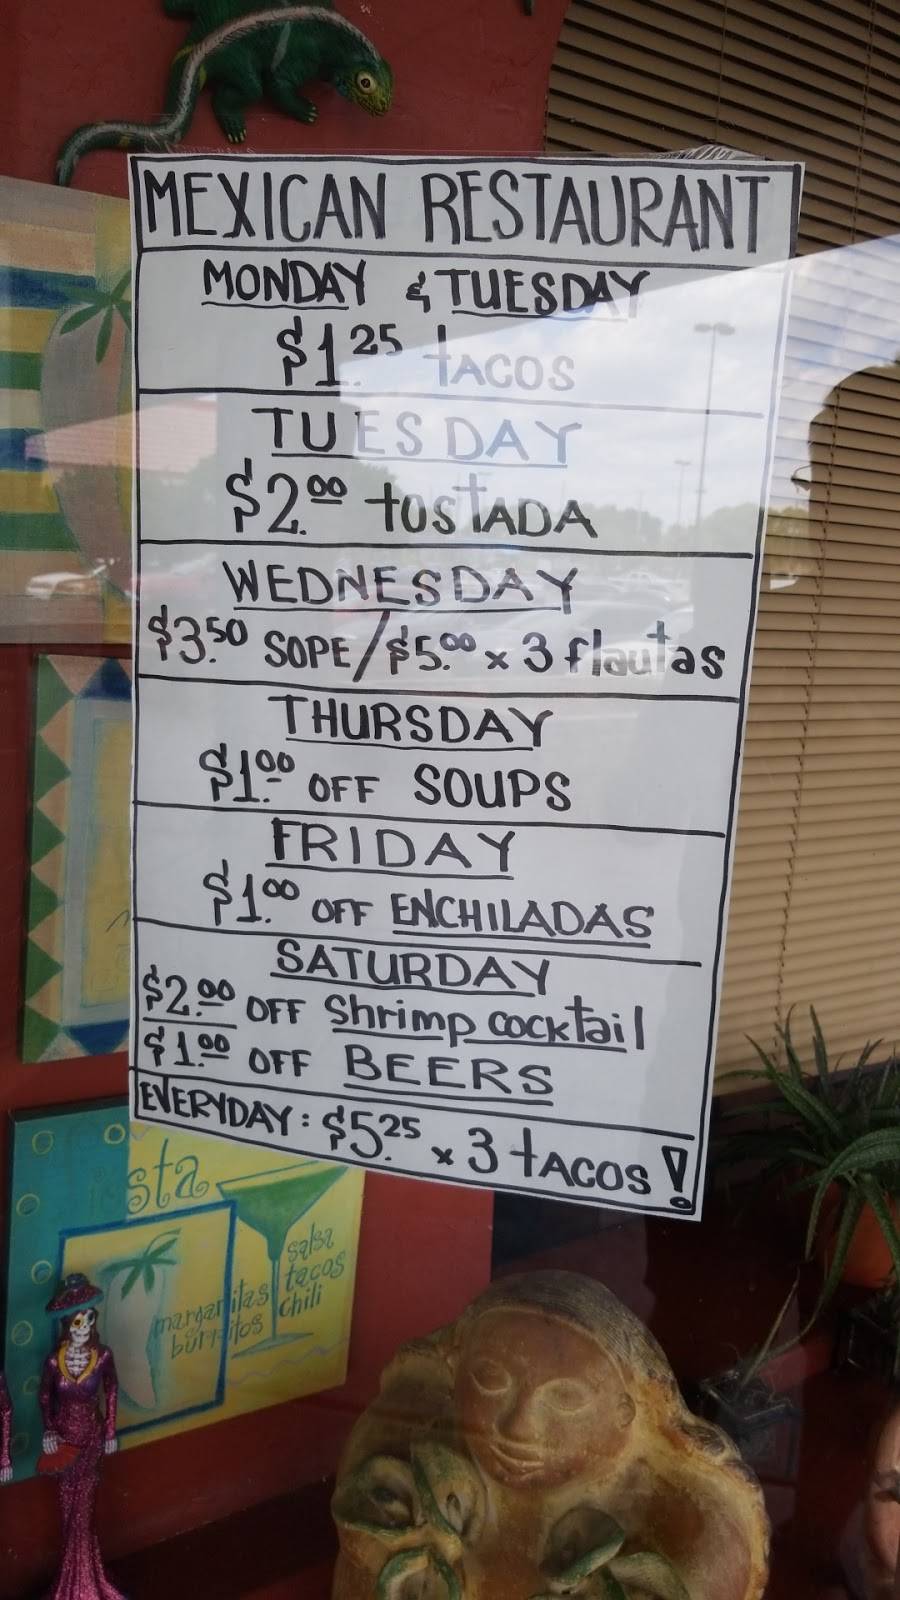 MEXICAN RESTAURANT
MONDAY & TUESDAY
$1.25 tACOS
TUESDAY
$2.00 tostADA
WEDNESDAY
$3.50 SOPE/$5.00 x 3 flautas
THURSDAY
$1.00 OFF SOUPS
FRIDAY
$1.00 OFF ENCHILADAS
SATURDAY
$2.00 OFF Shrimp cocktail
$1.00 OFF BEERS
EVERYDAY: $5.25 x 3 tACOS!
salsa
tacos
chili
margaritas
burritos